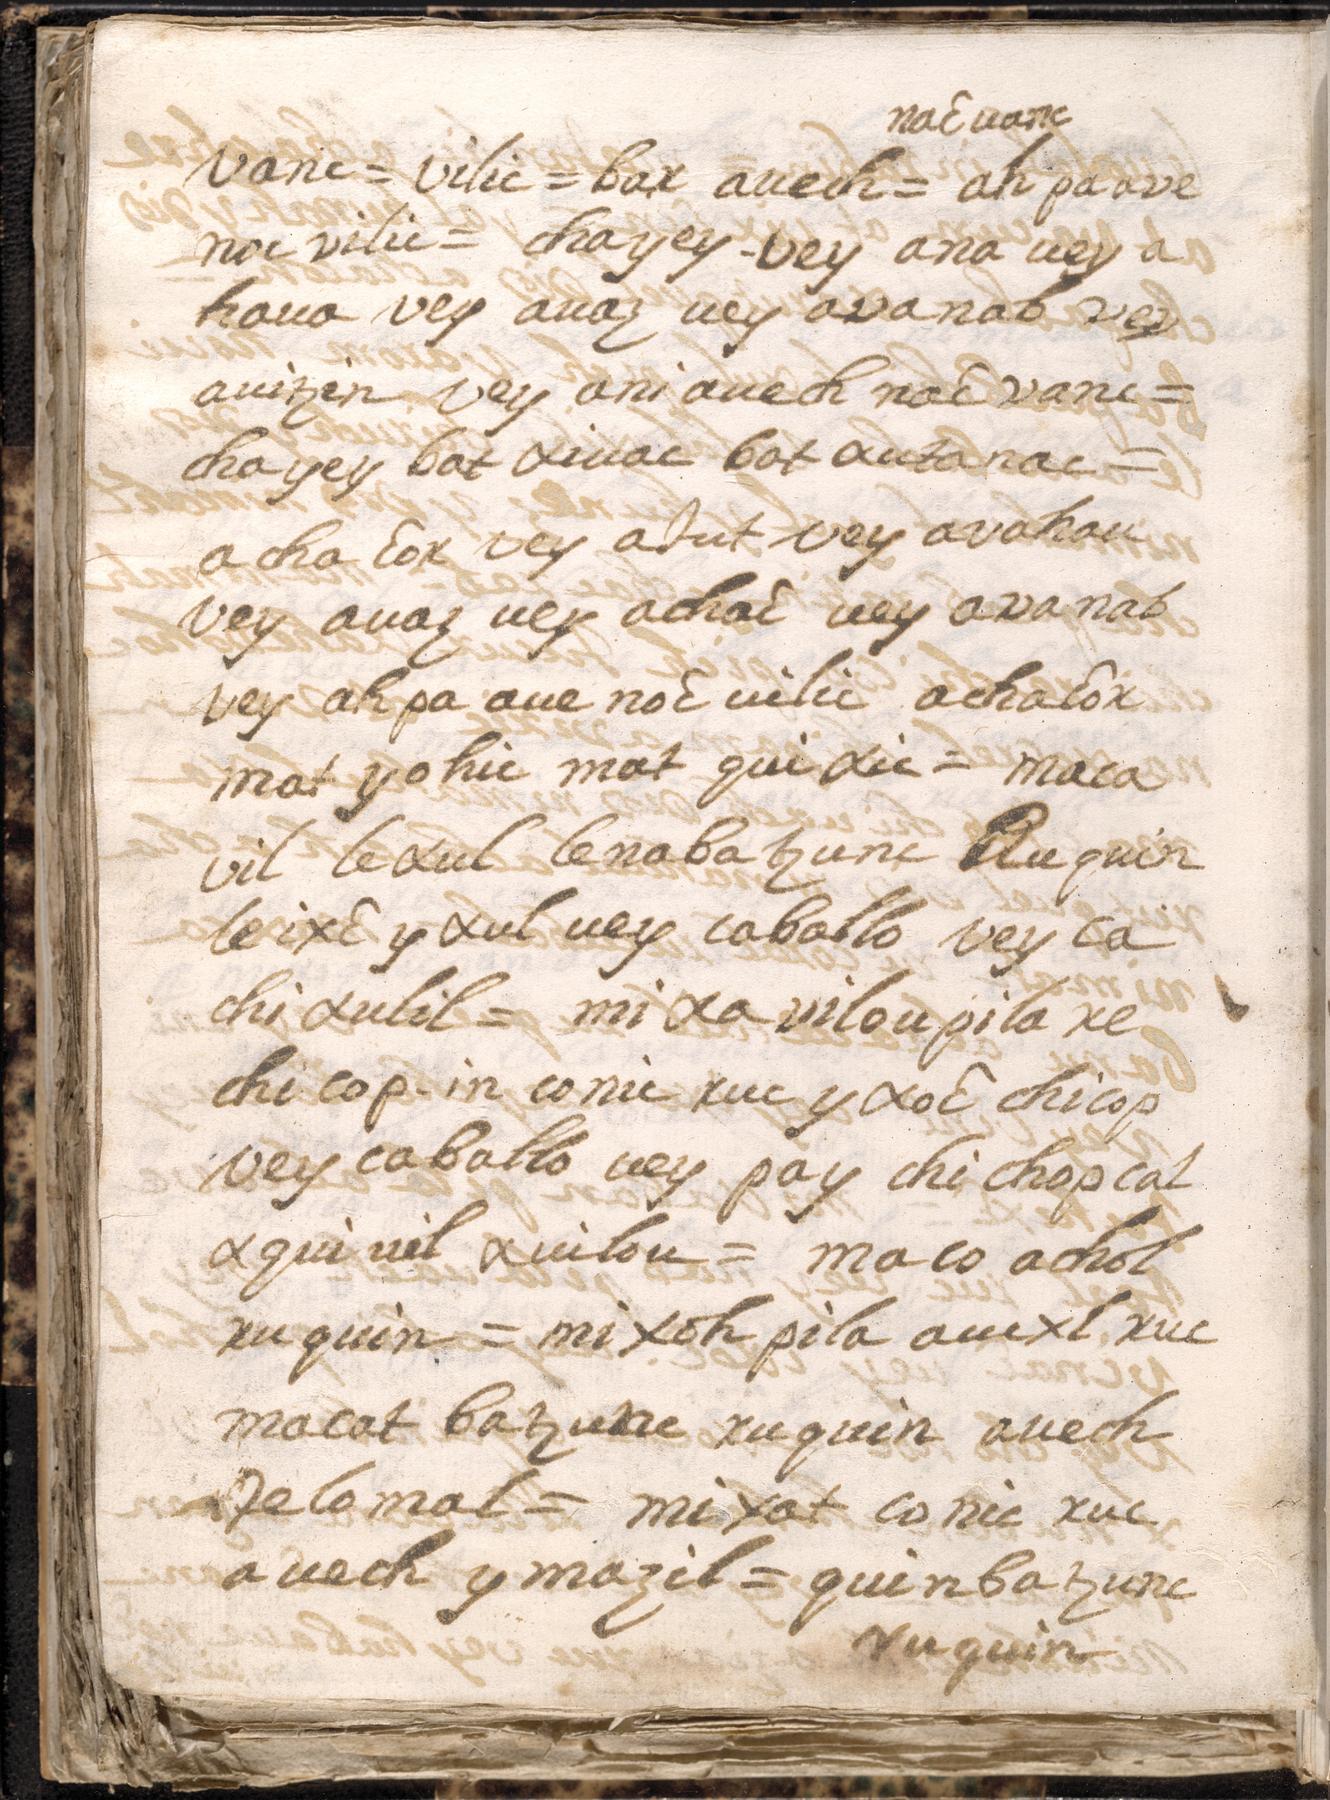 naƐ uanc
vanc = vilic = bax auech = ah pa ave
noc vilic = chayey - vey ana uey a
haua vey auaz uey avanab vey
auitzin vey ani auech naƐ vanc =
chayey bat xiuac bat xutanac =
acha Ɛox vey aJut vey avahau
vey auaz uey achaƐ uey avanab
vey ah pa aue noƐ uilic achaƐox
mat yohic mat qui xic = maca
vil le xul lenabatzunc Ruquin
le ixƐ y xul uey caballo vey ca
chi xulil = mi xa vilou pila xe
chicop in conic xuc y xoƐ chicop
vey caballo uey pay chi chop cat
xqui uil xuilou = maco achol
xuquin = mi xoh pila auexl xuc
macat batzunc xuquin auech
Jelomal = mi xat conic xuc
auech y mazil = quin batzunc
xuquin